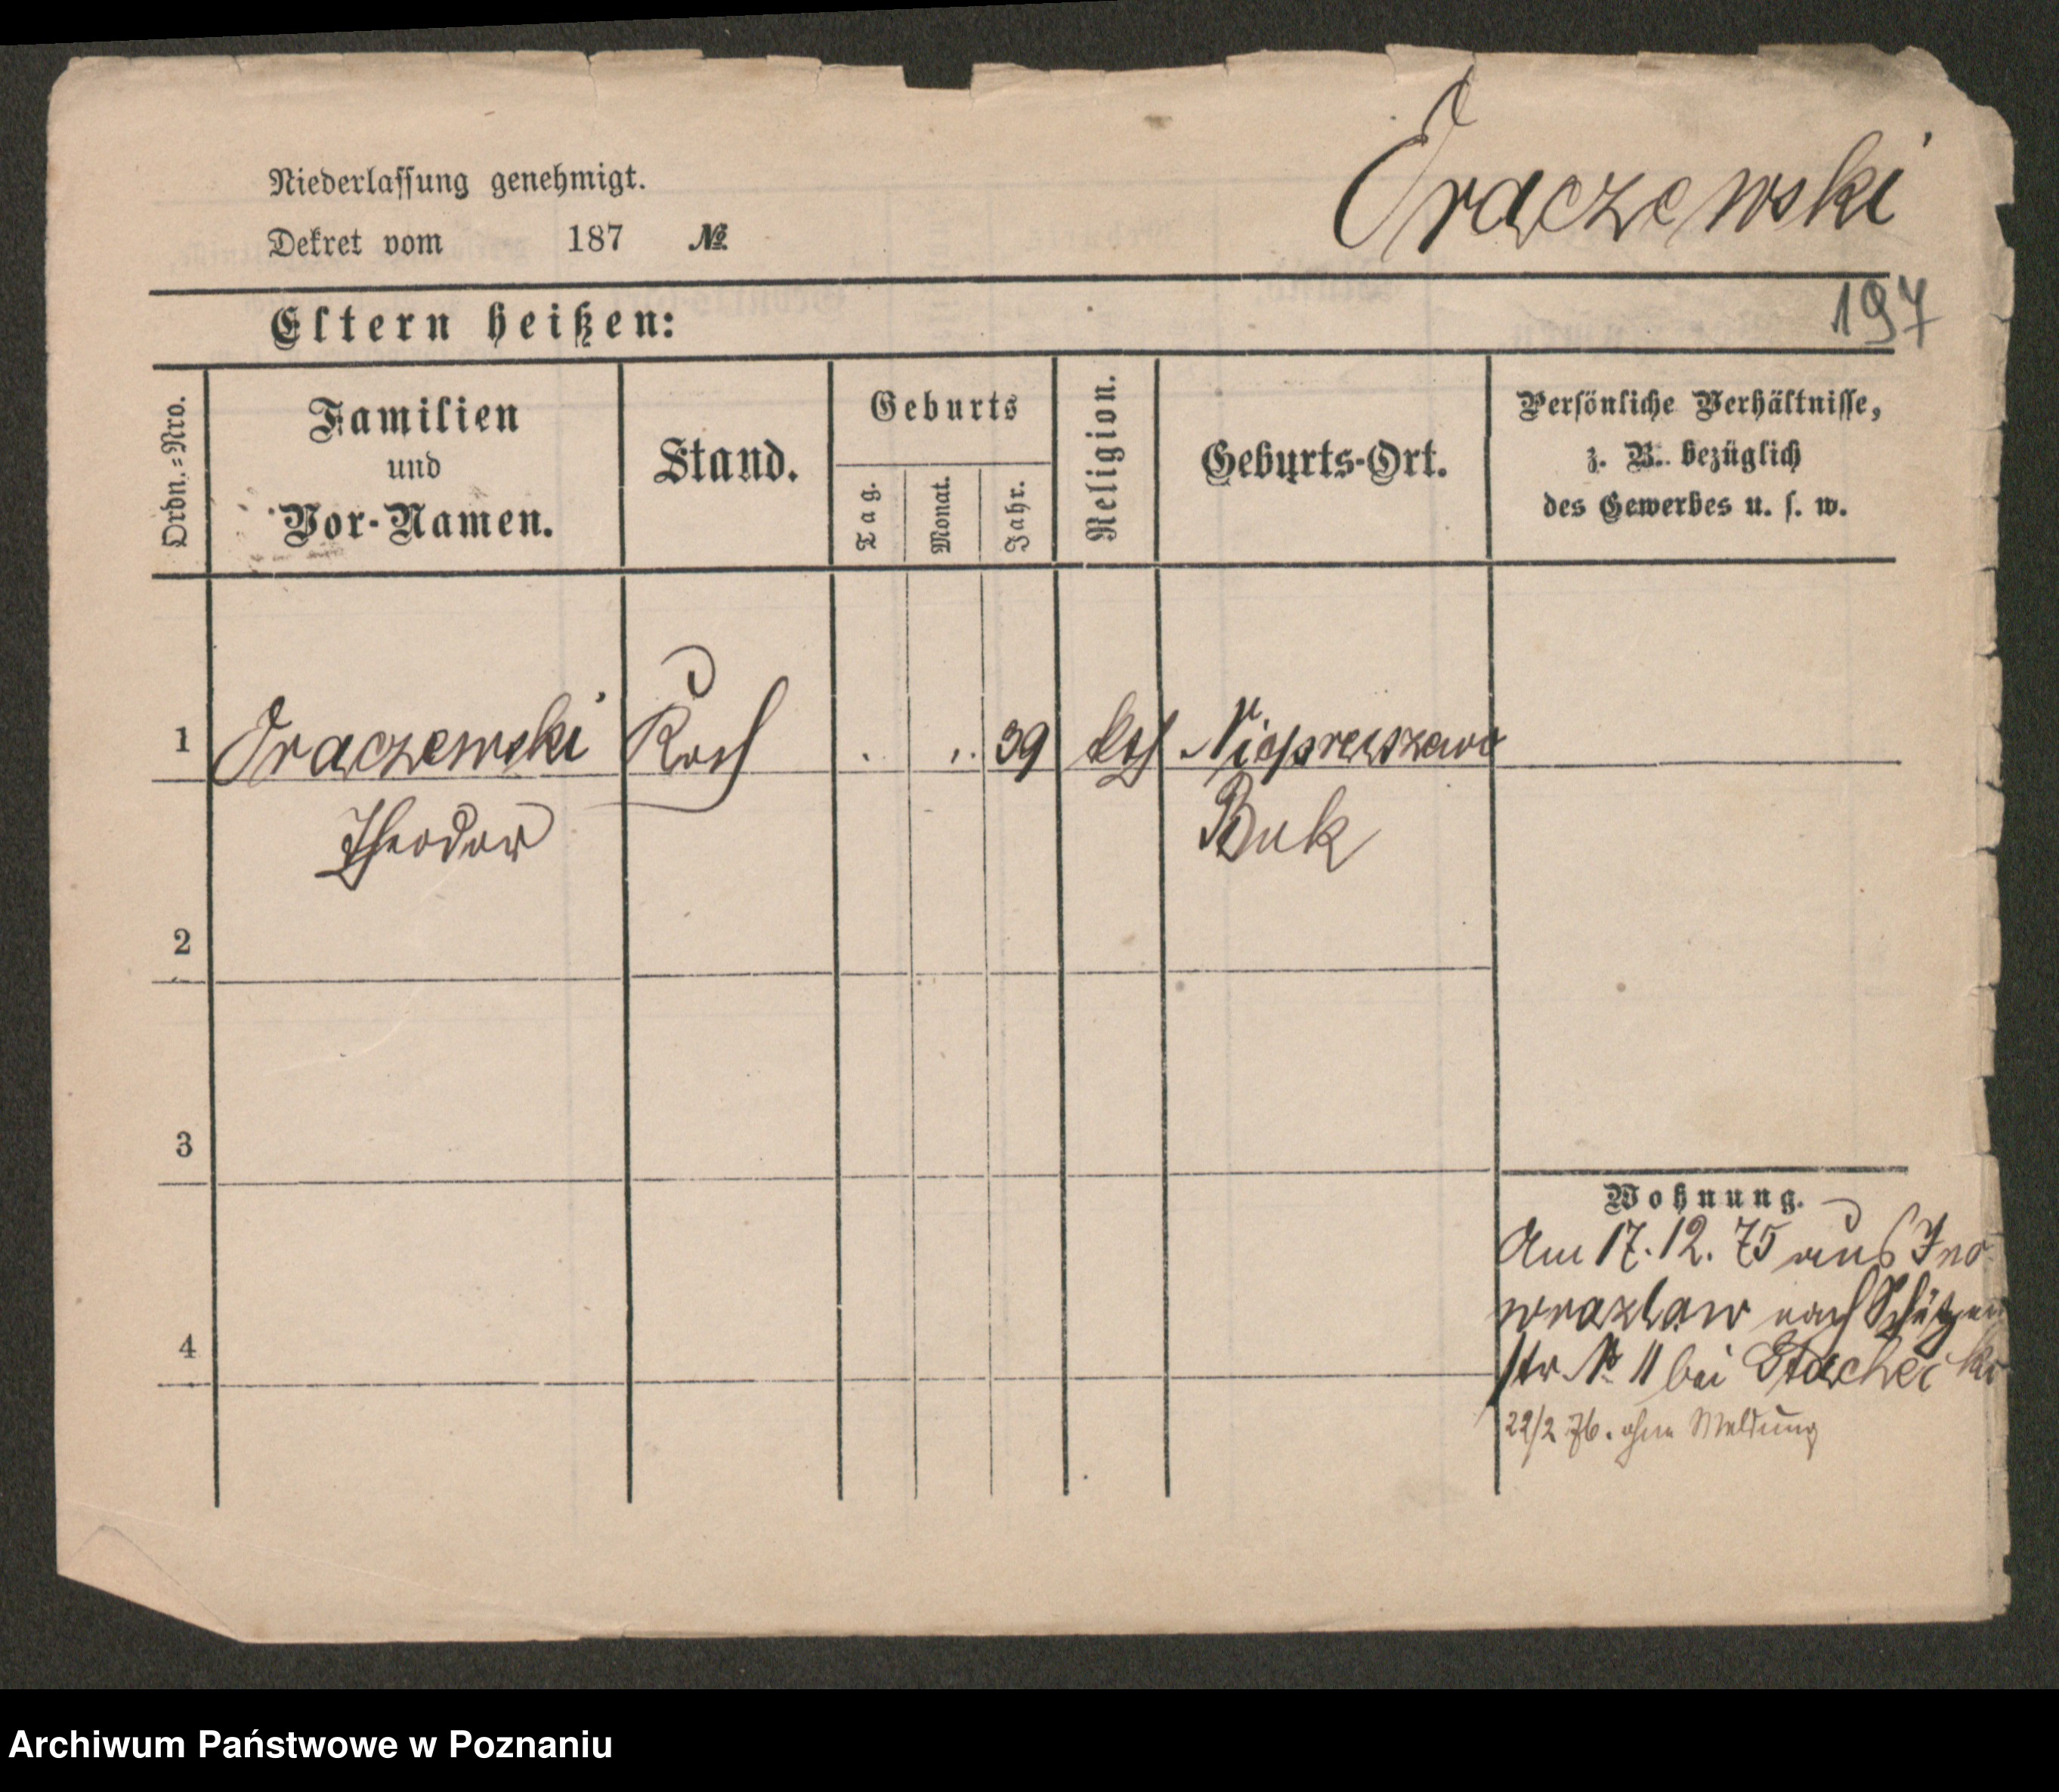 Niederlassung genehmigt.
Dekret vom 187 №
Draczewski
197
Eltern heißen:
Ordn.=Nro.
Familien
und
Vor-Namen.
Stand.
Geburts
Tag.
Monat.
Jahr.
Religion.
Geburts-Ort.
Persönliche Verhältnisse,
z. B. bezüglich
des Gewerbes u. s. w.
1 Draczewski Koch 39 kath Niepruszewo
Theodor Buk
2
3
4
Wohnung.
Am 17.12.75 aus Ino
wrazlaw nach Schützen
str № 11 bei Stachecki
22/2 76. ohne Meldung
Archiwum Państwowe w Poznaniu